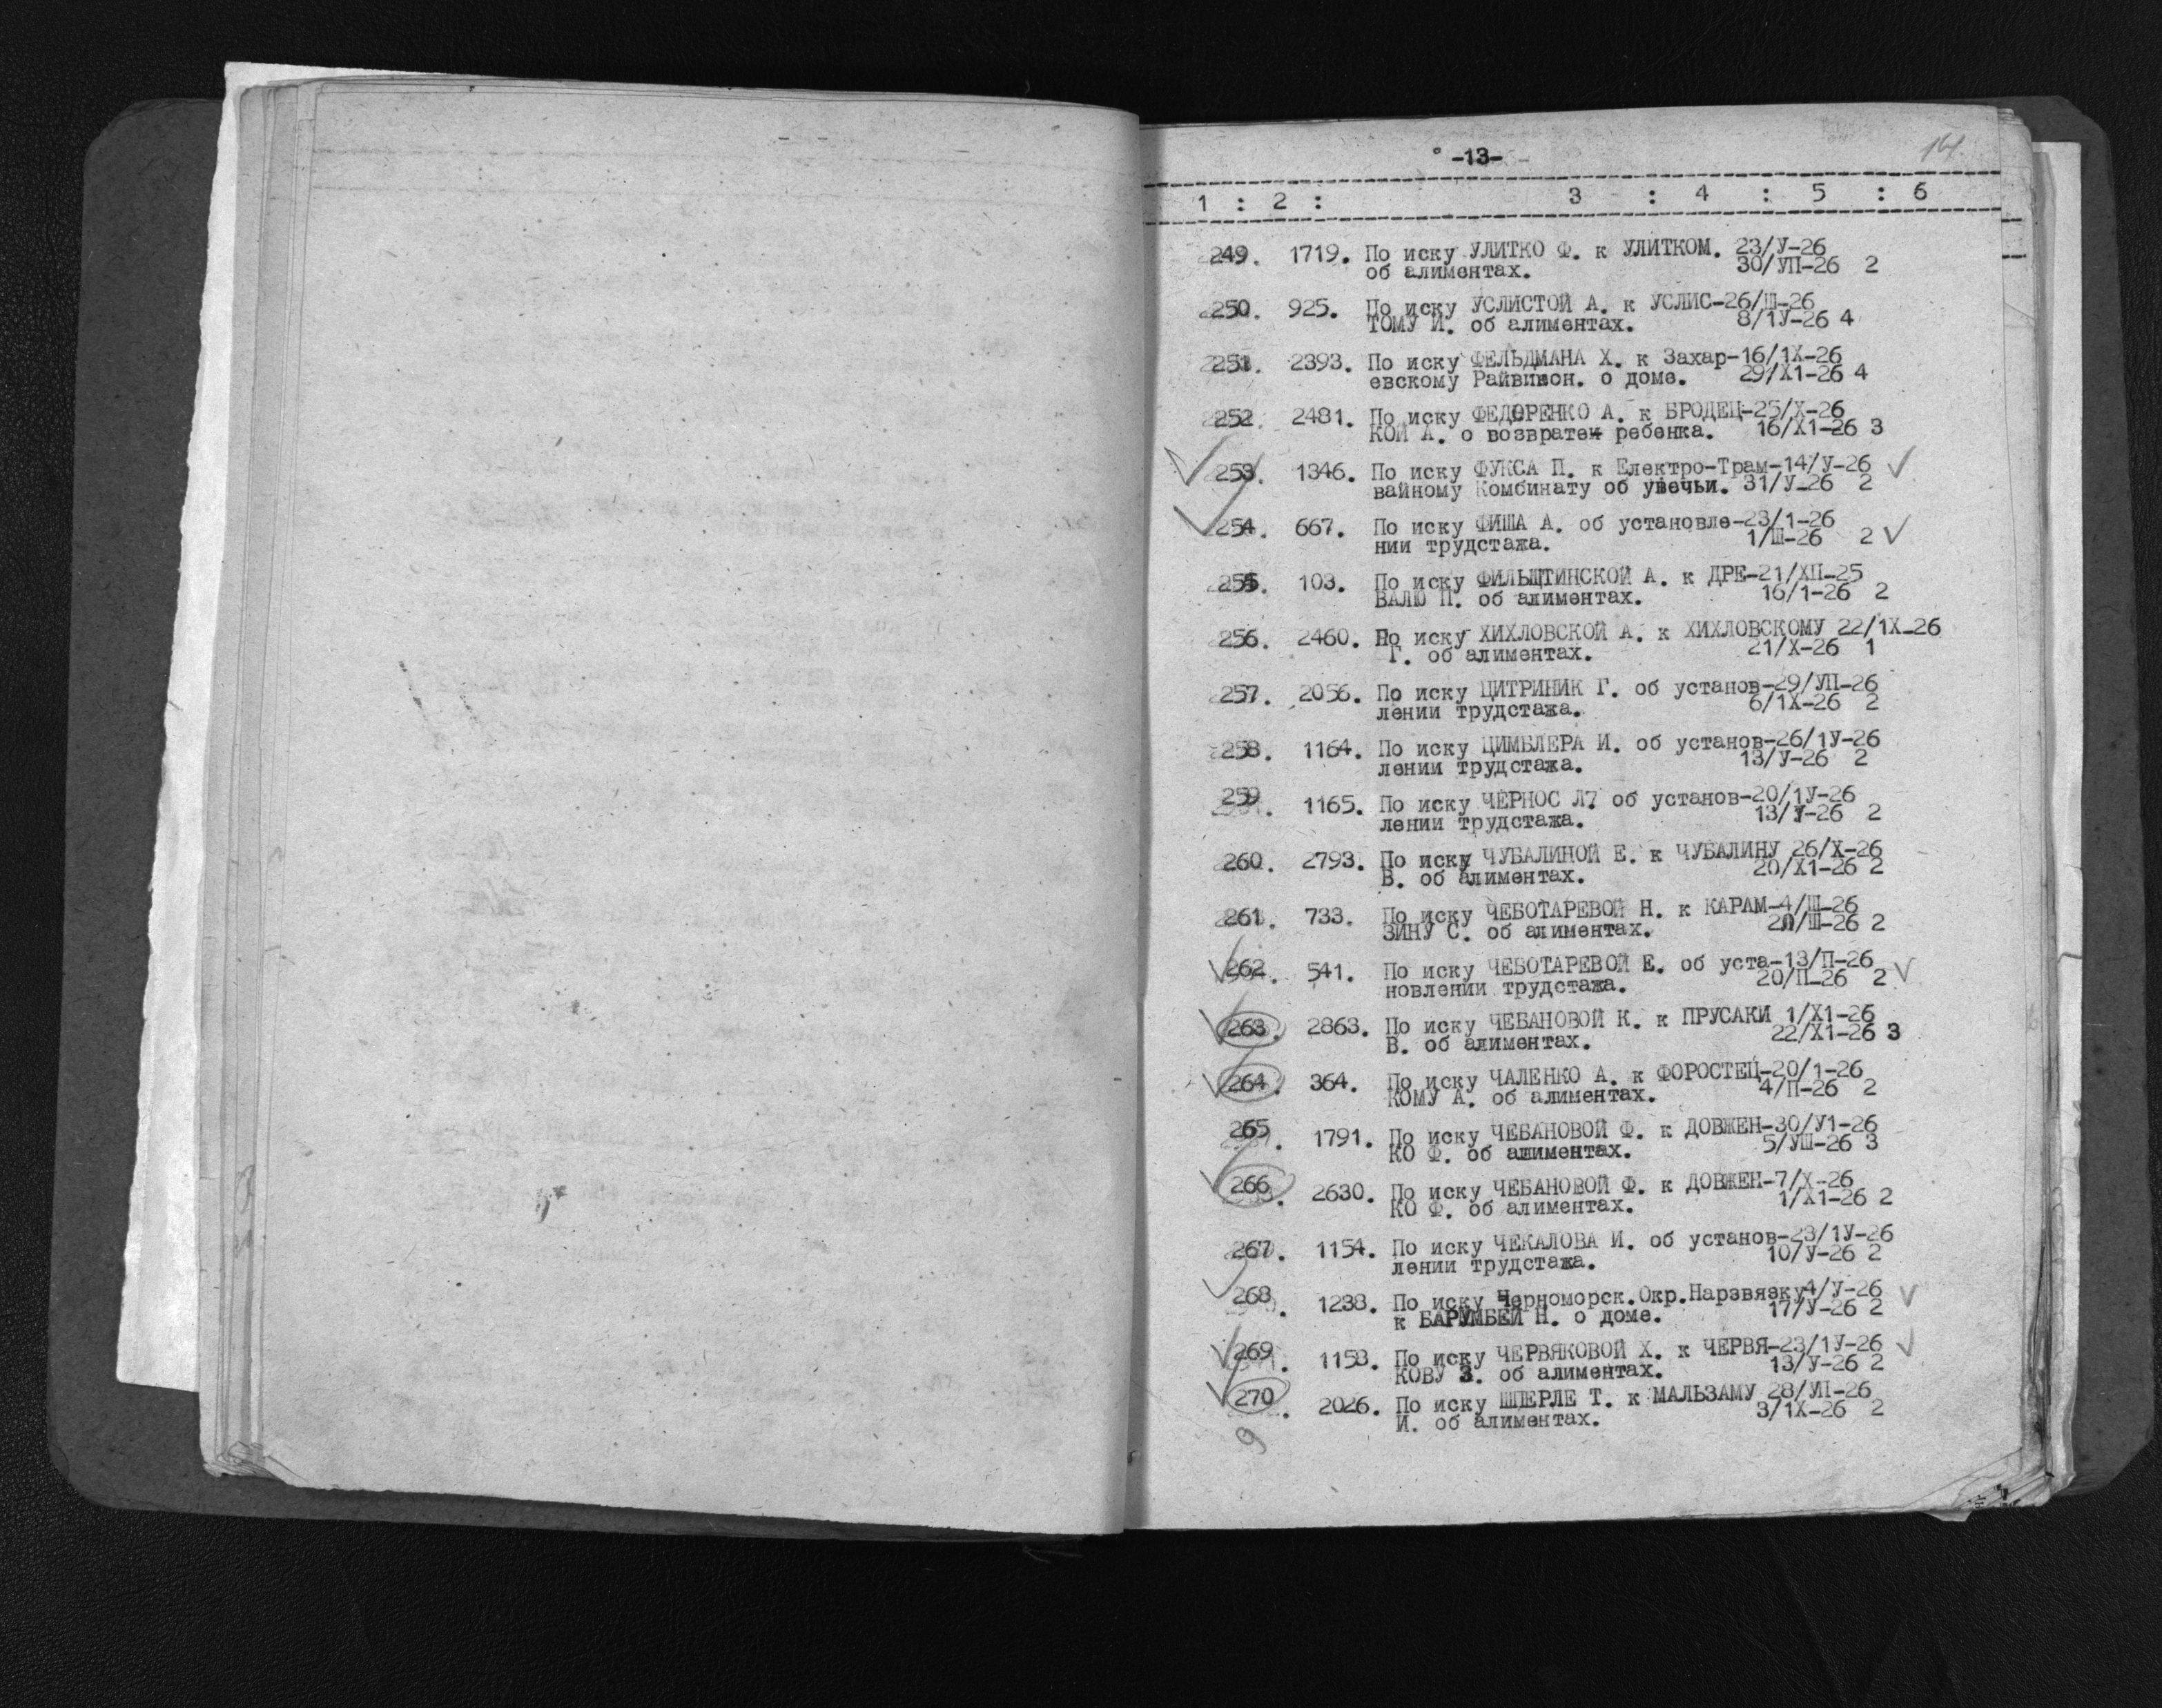 -13-
14.
1 : 2 : 3 : 4 : 5 : 6
249. 1719. По иску УЛИТКО Ф. к УЛИТКОМ. 23/У-26
об алиментах. 30/УП-26 2
250. 925. По иску УСЛИСТОЙ А. к УСЛИС-26/Ш-26
ТОМУ И. об алиментах. 8/1У-26 4
251. 2393. По иску ФЕЛЬДМАНА Х. к Захар-16/1Х-26
евскому Райвикон. о доме. 29/Х1-26 4
252 2481. По иску ФЕДОРЕНКО А. к БРОДЕЦ-25/Х-26
КОЙ А. о возврате ребенка. 16/Х1-26 3
253. 1346. По иску ФУКСА П. к Електро-Трам-14/У-26
вайному Комбинату об увечьи. 31/У-26 2
254. 667. По иску ФИША А. об установле-23/1-26
нии трудстажа. 1/Ш-26 2
255. 103. По иску ФИЛЬЩТИНСКОЙ А. к ДРЕ-21/ХП-25
ВАЛЮ П. об алиментах. 16/1-26 2
256. 2460. По иску ХИХЛОВСКОЙ А. к ХИХЛОВСКОМУ 22/1Х-26
Г. об алиментах. 21/Х-26 1
257. 2056. По иску ЦИТРИНИК Г. об установ-29/УП-26
лении трудстажа. 6/1Х-26 2
258. 1164. По иску ЦИМБЛЕРА И. об установ-26/1У-26
лении трудстажа. 13/У-26 2
259 1165. По иску ЧЕРНОС Л7 об установ-20/1У-26
лении трудстажа. 13/У-26 2
260. 2793. По иску ЧУБАЛИНОЙ Е. к ЧУБАЛИНУ 26/Х-26
В. об алиментах. 20/Х1-26 2
261. 733. По иску ЧЕБОТАРЕВОЙ Н. к КАРАМ-4/Ш-26
ЗИНУ С. об алиментах. 20/Ш-26 2
262. 541. По иску ЧЕБОТАРЕВОЙ Е. об уста-13/П-26
новлении трудстажа. 20/П-26 2
263. 2863. По иску ЧЕБАНОВОЙ К. к ПРУСАКИ 1/Х1-26
В. об алиментах. 22/Х1-26 3
264. 364. По иску ЧАЛЕНКО А. к ФОРОСТЕЦ-20/1-26
КОМУ А. об алиментах. 4/П-26 2
265. 1791. По иску ЧЕБАНОВОЙ Ф. к ДОВЖЕН-30/У1-26
КО Ф. об алиментах. 5/УШ-26 3
266. 2630. По иску ЧЕБАНОВОЙ Ф. к ДОВЖЕН-7/Х-26
КО Ф. об алиментах. 1/Х1-26 2
267. 1154. По иску ЧЕКАЛОВА И. об установ-23/1У-26
лении трудстажа. 10/У-26 2
268. 1238. По иску Черноморск.Окр.Нарзвязку4/У-26
к БАРУМБЕЙ Н. о доме. 17/У-26 2
269. 1153. По иску ЧЕРВЯКОВОЙ Х. к ЧЕРВЯ-23/1У-26
КОВУ З. об алиментах. 13/У-26 2
270. 2026. По иску ШПЕРЛЕ Т. к МАЛЬЗАМУ 28/УП-26
И. об алиментах. 3/1Х-26 2
9